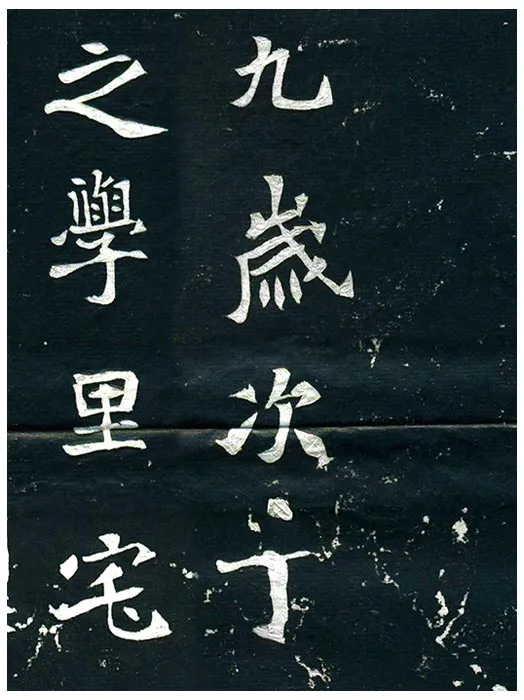 九歲次丁
之學里宅